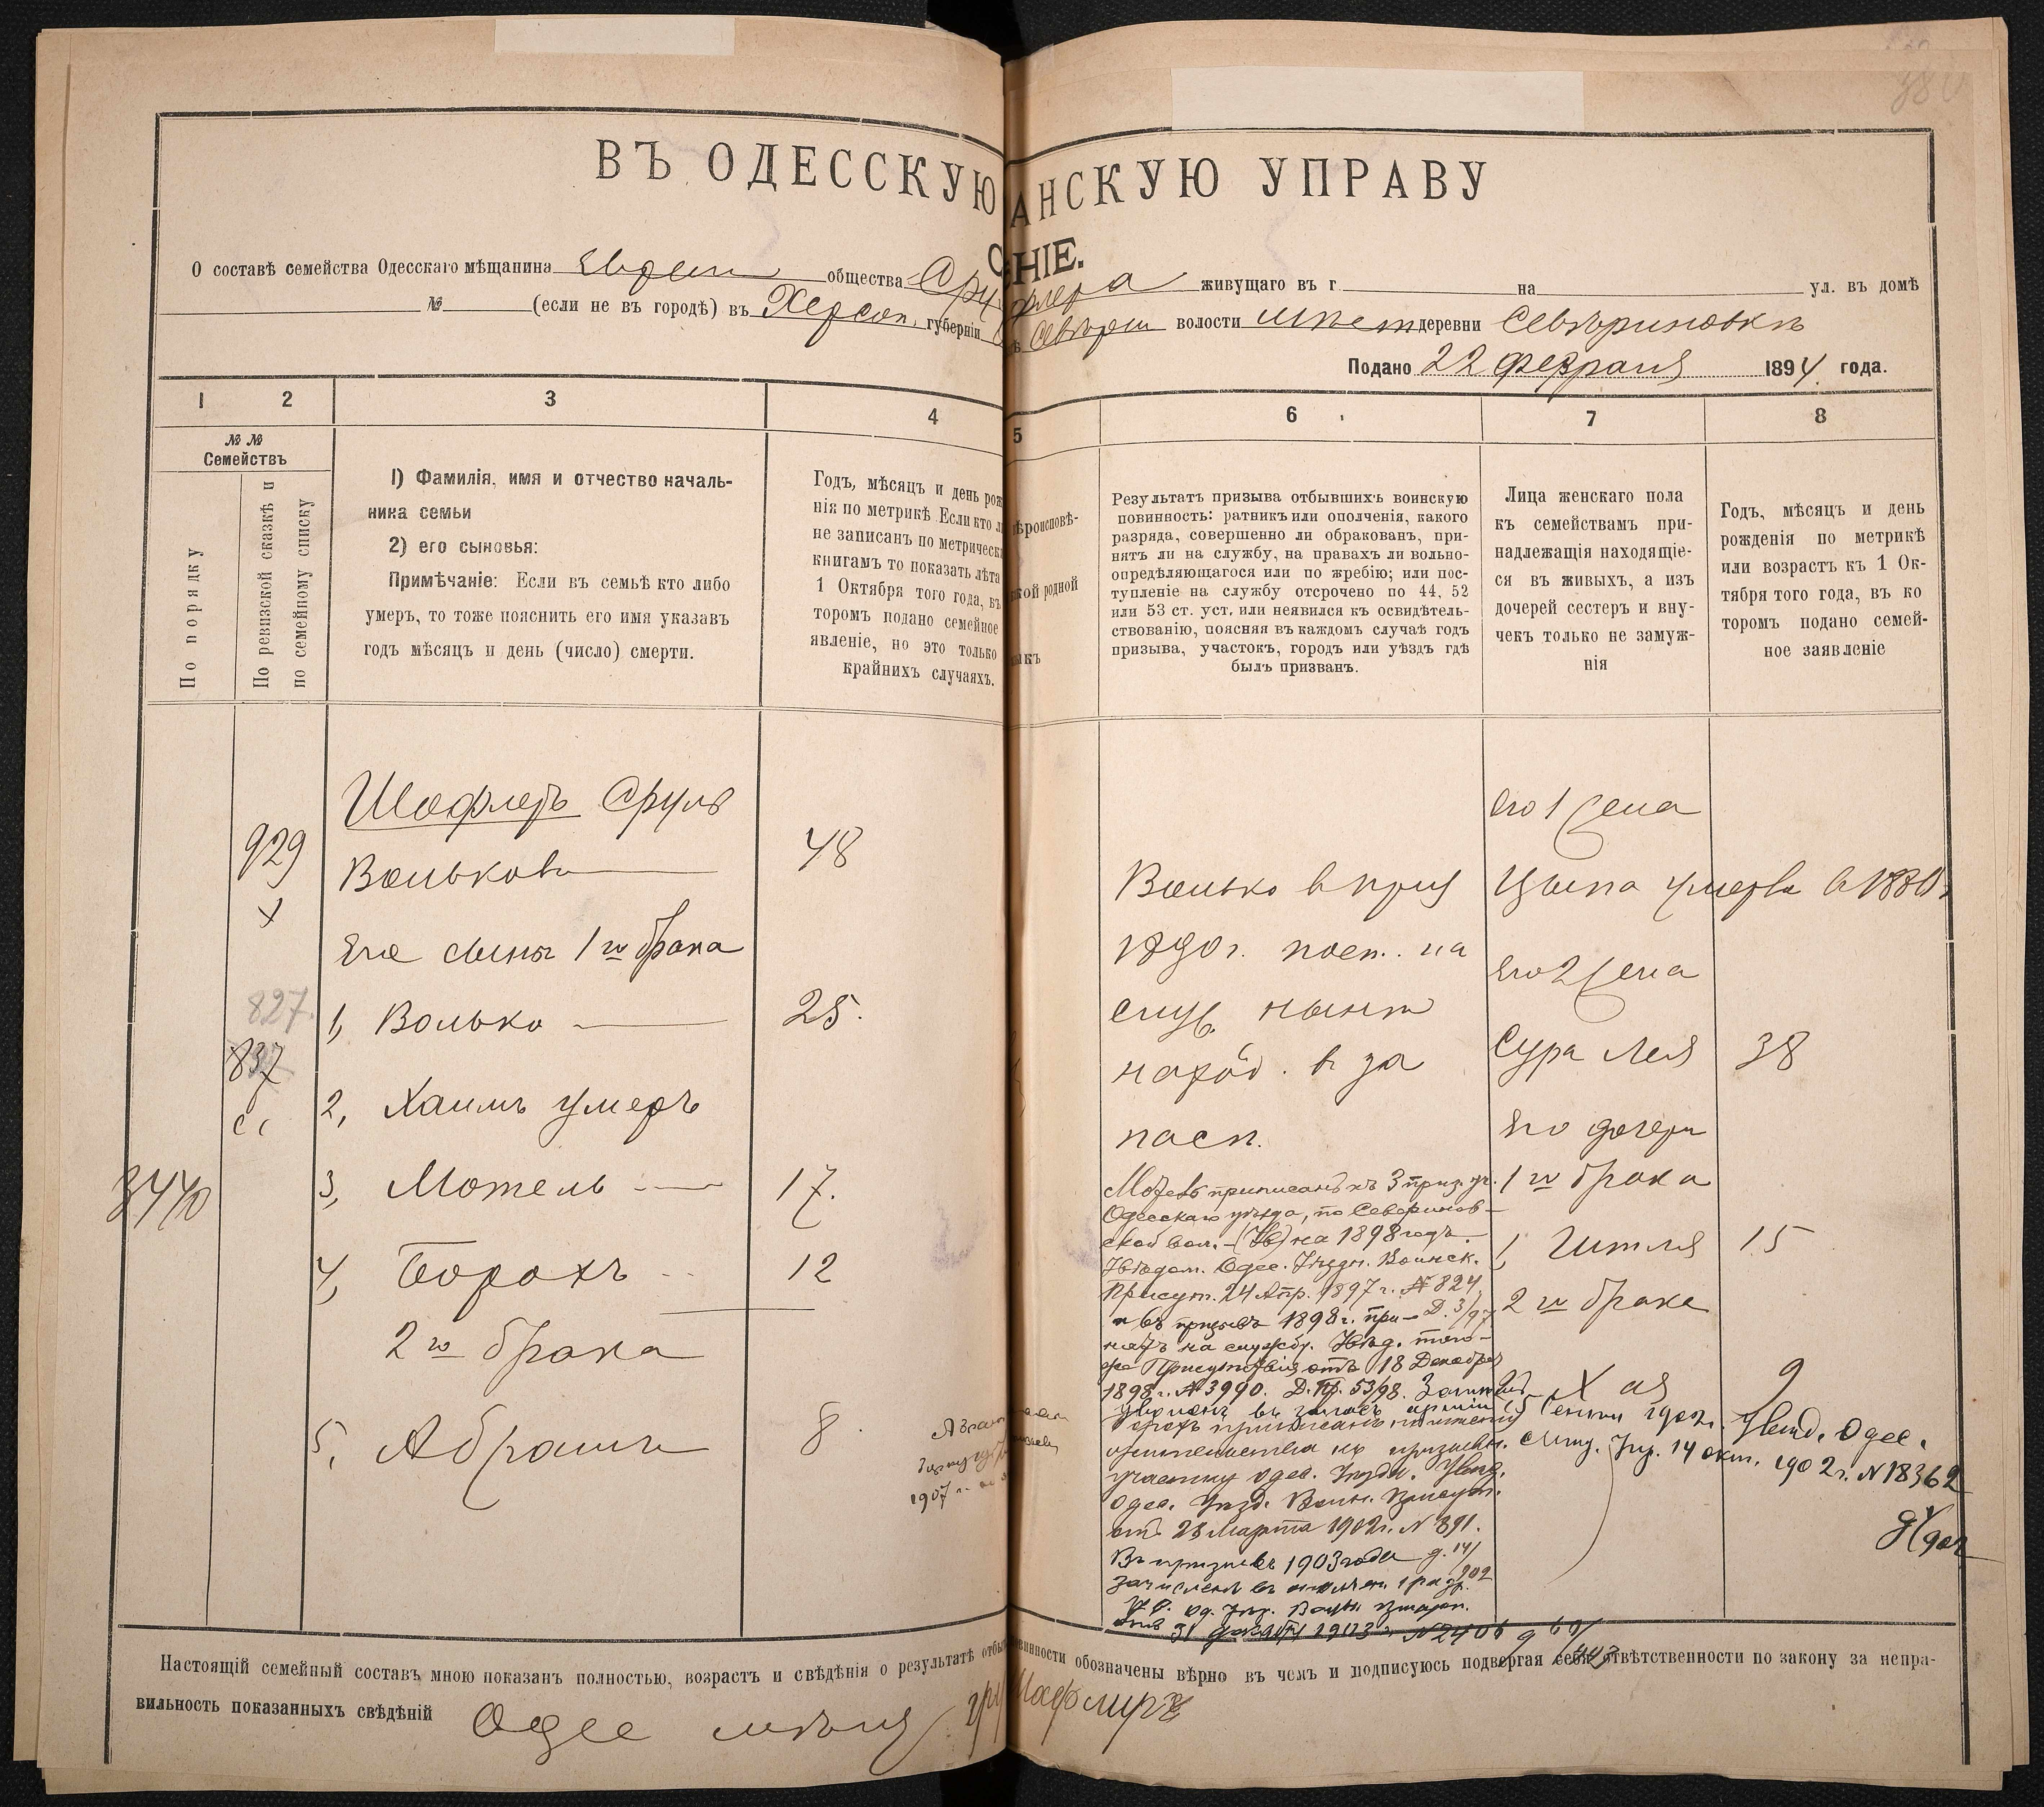 380
ВЪ ОДЕССКУЮ АНСКУЮ УПРАВУ
НІЕ.
О составѣ семейства Одесскаго мѣщанина Еврейск общества Сру флера живущаго въ г на ул. въ домѣ
№ (если не въ городѣ) въ Херсон. губерніи Севѣрин волости мѣст деревни Севѣриновкѣ
Подано 22 Февраля 1894 года.
1 2 3 4 5 6 7 8
№ №
Семействъ
По порядку
По ревизской сказкѣ и
по семейному списку
1) Фамилія, имя и отчество началь-
ника семьи
2) его сыновья:
Примѣчаніе: Если въ семьѣ кто либо
умеръ, то тоже пояснить его имя указавъ
годъ мѣсяцъ и день (число) смерти.
Годъ, мѣсяцъ и день рож
нія по метрикѣ Если кто л
не записанъ по метрическ
книгамъ то показать лѣта
1 Октября того года, въ
торомъ подано семейное
явленіе, но это только
крайнихъ случаяхъ.
ѣроисповѣ-
кой родной
ыкъ
Результатъ призыва отбывшихъ воинскую
повинность: ратникъ или ополченія, какого
разряда, совершенно ли обракованъ, при-
нятъ ли на службу, на правахъ ли вольно-
опредѣляющагося или по жребію; или пос-
тупленіе на службу отсрочено по 44, 52
или 53 ст. уст. или неявился къ освидѣтель-
ствованію, поясняя въ каждомъ случаѣ годъ
призыва, участокъ, городъ или уѣздъ гдѣ
былъ призванъ.
Лица женскаго пола
къ семействамъ при-
надлежащія находящіе-
ся въ живыхъ, а изъ
дочерей сестеръ и вну-
чекъ только не замуж-
нія
Годъ, мѣсяцъ и день
рожденія по метрикѣ
или возрастъ къ 1 Ок-
тября того года, въ ко
торомъ подано семей-
ное заявленіе
929
827.
837
3440
Шафлеръ Сруль
Вольковъ 48
Его сыны 1го брака
1, Волько 25.
2, Хаимъ умеръ
3, Мотель 17.
4, Борохъ 12
2го брака
5, Абрамъ 8
1907 г.
Волько в приз
1890 г. пост. на
служ. нынѣ
наход. в за
пасѣ.
Мотель приписанъ къ 3 приз. уч.
Одесскаго уѣзда, по Северинов-
ской вол. на 1898 годъ.
Увѣдом. Одес. Уѣздн. Воинск.
Присут. 24 Апр. 1897 г. № 824
въ призывъ 1898 г. при- Д. 3/97
нятъ на службу. Увѣд. того-
же Присутствія отъ 18 Декабря
1898 г. № 3990. Д. Пр. 53/98.
уволенъ въ запасъ арміи
участку Одес. Уѣздн. Увѣд.
Одес. Уѣзд. Воин. Присут.
отъ 28 Марта 1902 г. N 891.
Въ призывъ 1903 года д. 14/902
зачисленъ въ ополчен. 1 разр.
Од. Уѣз. Воин. Присут.
отъ 31 Декабря 1903 г. N 2406
его 1 жена
Цыпа умерла в 1880 г.
его 2 жена
Сура Лея 38
Его дочери
1го брака
1, Гитля 15
2го брака
Хая 9
Сентяб 1902 г. Увѣд. Одес.
Упр. 14 окт. 1902 г. N 18362
Настоящій семейный составъ мною показанъ полностью, возрастъ и свѣдѣнія о результатѣ отбы винности обозначены вѣрно въ чемъ и подписуюсь подвергая себя отвѣтственности по закону за непра-
вильность показанныхъ свѣдѣній Одес мѣщ Шафлиръ